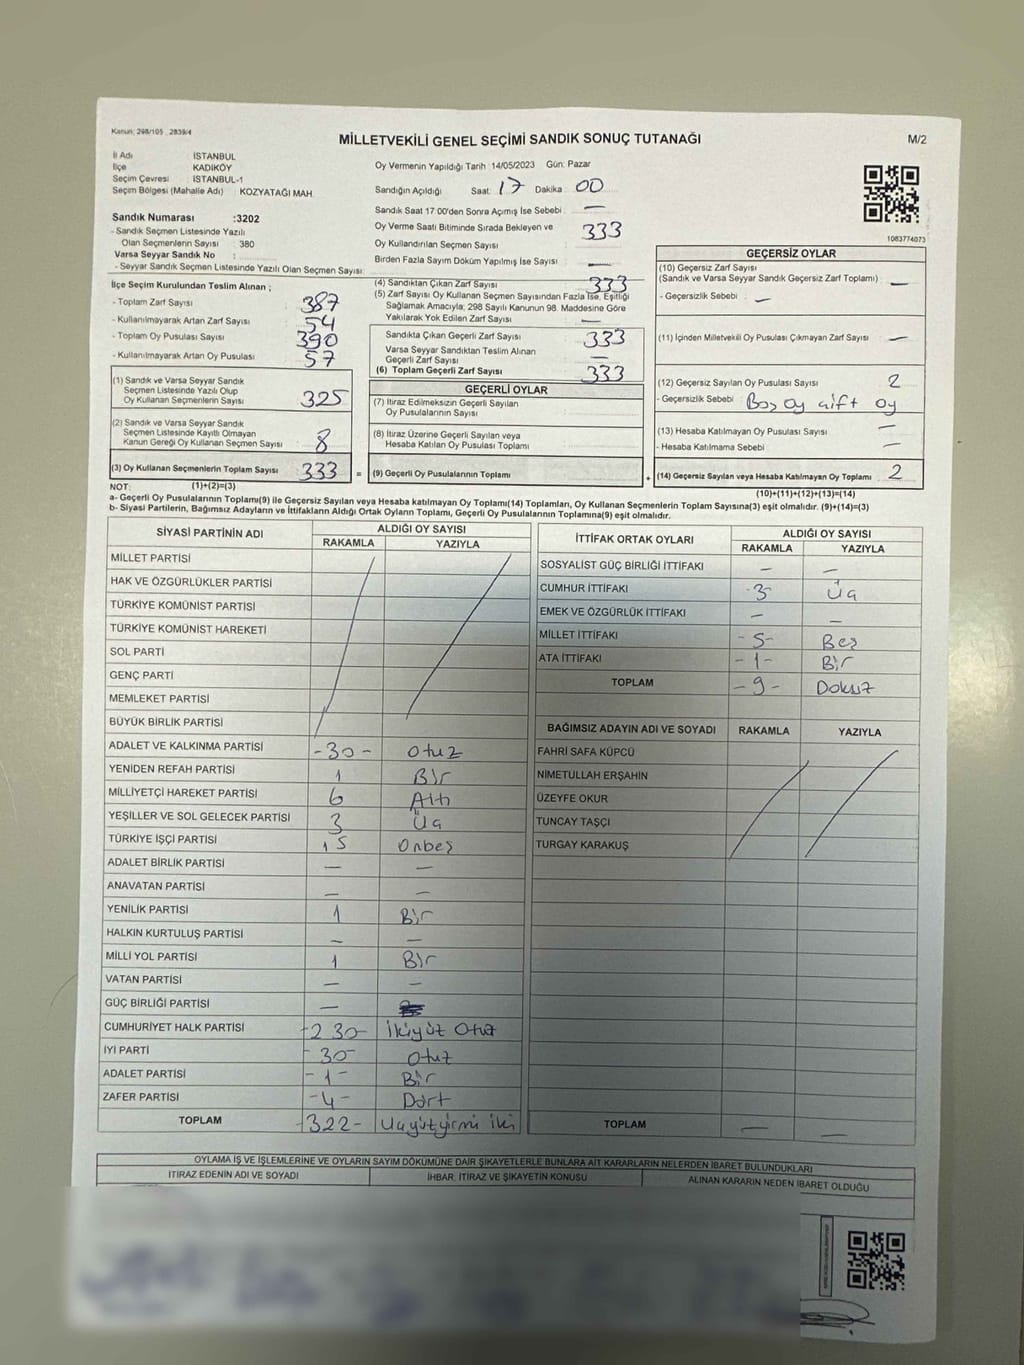 Kanun: 298/105 , 2839/4
MİLLETVEKİLİ GENEL SEÇİMİ SANDIK SONUÇ TUTANAĞI
M/2
İl Adı İSTANBUL
İlçe KADIKÖY
Seçim Çevresi : İSTANBUL-1
Seçim Bölgesi (Mahalle Adı) : KOZYATAĞI MAH
Sandık Numarası :3202
- Sandık Seçmen Listesinde Yazılı
Olan Seçmenlerin Sayısı : 380
Varsa Seyyar Sandık No :
- Seyyar Sandık Seçmen Listesinde Yazılı Olan Seçmen Sayısı:
Oy Vermenin Yapıldığı Tarih :14/05/2023 Gün: Pazar
Sandığın Açıldığı Saat: 17 Dakika: 00
Sandık Saat 17:00'den Sonra Açımış İse Sebebi : —
Oy Verme Saati Bitiminde Sırada Bekleyen ve
Oy Kullandırılan Seçmen Sayısı : 333
Birden Fazla Sayım Döküm Yapılmış İse Sayısı : —
1083774073
İlçe Seçim Kurulundan Teslim Alınan ;
- Toplam Zarf Sayısı : 387
- Kullanılmayarak Artan Zarf Sayısı : 54
- Toplam Oy Pusulası Sayısı : 390
- Kullanılmayarak Artan Oy Pusulası : 57
(1) Sandık ve Varsa Seyyar Sandık
Seçmen Listesinde Yazılı Olup
Oy Kullanan Seçmenlerin Sayısı : 325
(2) Sandık ve Varsa Seyyar Sandık
Seçmen Listesinde Kayıtlı Olmayan
Kanun Gereği Oy Kullanan Seçmen Sayısı : 8
(3) Oy Kullanan Seçmenlerin Toplam Sayısı : 333
(4) Sandıktan Çıkan Zarf Sayısı : 333
(5) Zarf Sayısı Oy Kullanan Seçmen Sayısından Fazla İse, Eşitliği
Sağlamak Amacıyla; 298 Sayılı Kanunun 98. Maddesine Göre
Yakılarak Yok Edilen Zarf Sayısı : —
Sandıkta Çıkan Geçerli Zarf Sayısı : 333
Varsa Seyyar Sandıktan Teslim Alınan
Geçerli Zarf Sayısı : —
(6) Toplam Geçerli Zarf Sayısı : 333
GEÇERLİ OYLAR
(7) İtiraz Edilmeksizin Geçerli Sayılan
Oy Pusulalarının Sayısı :
(8) İtiraz Üzerine Geçerli Sayılan veya
Hesaba Katılan Oy Pusulası Toplamı :
= (9) Geçerli Oy Pusulalarının Toplamı :
GEÇERSİZ OYLAR
(10) Geçersiz Zarf Sayısı
(Sandık ve Varsa Seyyar Sandık Geçersiz Zarf Toplamı) : —
- Geçersizlik Sebebi : —
(11) İçinden Milletvekili Oy Pusulası Çıkmayan Zarf Sayısı : —
(12) Geçersiz Sayılan Oy Pusulası Sayısı : 2
- Geçersizlik Sebebi : Boş Oy çift oy
(13) Hesaba Katılmayan Oy Pusulası Sayısı : —
- Hesaba Katılmama Sebebi : —
+ (14) Geçersiz Sayılan veya Hesaba Katılmayan Oy Toplamı : 2
NOT: (1)+(2)=(3)
(10)+(11)+(12)+(13)=(14)
a- Geçerli Oy Pusulalarının Toplamı(9) ile Geçersiz Sayılan veya Hesaba katılmayan Oy Toplamı(14) Toplamları, Oy Kullanan Seçmenlerin Toplam Sayısına(3) eşit olmalıdır. (9)+(14)=(3)
b- Siyasi Partilerin, Bağımsız Adayların ve İttifakların Aldığı Ortak Oyların Toplamı, Geçerli Oy Pusulalarının Toplamına(9) eşit olmalıdır.
SİYASİ PARTİNİN ADI ALDIĞI OY SAYISI
RAKAMLA YAZIYLA
MİLLET PARTİSİ
HAK VE ÖZGÜRLÜKLER PARTİSİ
TÜRKİYE KOMÜNİST PARTİSİ
TÜRKİYE KOMÜNİST HAREKETİ
SOL PARTİ
GENÇ PARTİ
MEMLEKET PARTİSİ
BÜYÜK BİRLİK PARTİSİ
ADALET VE KALKINMA PARTİSİ -30- otuz
YENİDEN REFAH PARTİSİ 1 Bir
MİLLİYETÇİ HAREKET PARTİSİ 6 Altı
YEŞİLLER VE SOL GELECEK PARTİSİ 3 Üç
TÜRKİYE İŞÇİ PARTİSİ 15 Onbeş
ADALET BİRLİK PARTİSİ — —
ANAVATAN PARTİSİ — —
YENİLİK PARTİSİ 1 Bir
HALKIN KURTULUŞ PARTİSİ — —
MİLLİ YOL PARTİSİ 1 Bir
VATAN PARTİSİ — —
GÜÇ BİRLİĞİ PARTİSİ —
CUMHURİYET HALK PARTİSİ -230- İkiyüz Otuz
İYİ PARTİ -30- otuz
ADALET PARTİSİ -1- Bir
ZAFER PARTİSİ -4- Dört
TOPLAM -322- Üçyüzyirmi iki
İTTİFAK ORTAK OYLARI ALDIĞI OY SAYISI
RAKAMLA YAZIYLA
SOSYALİST GÜÇ BİRLİĞİ İTTİFAKI — —
CUMHUR İTTİFAKI -3- Üç
EMEK VE ÖZGÜRLÜK İTTİFAKI — —
MİLLET İTTİFAKI -5- Beş
ATA İTTİFAKI -1- Bir
TOPLAM -9- Dokuz
BAĞIMSIZ ADAYIN ADI VE SOYADI RAKAMLA YAZIYLA
FAHRİ SAFA KÜPCÜ
NİMETULLAH ERŞAHİN
ÜZEYFE OKUR
TUNCAY TAŞÇI
TURGAY KARAKUŞ
TOPLAM — —
OYLAMA İŞ VE İŞLEMLERİNE VE OYLARIN SAYIM DÖKÜMÜNE DAİR ŞİKAYETLERLE BUNLARA AİT KARARLARIN NELERDEN İBARET BULUNDUKLARI
İTİRAZ EDENİN ADI VE SOYADI İHBAR, İTİRAZ VE ŞİKAYETİN KONUSU ALINAN KARARIN NEDEN İBARET OLDUĞU